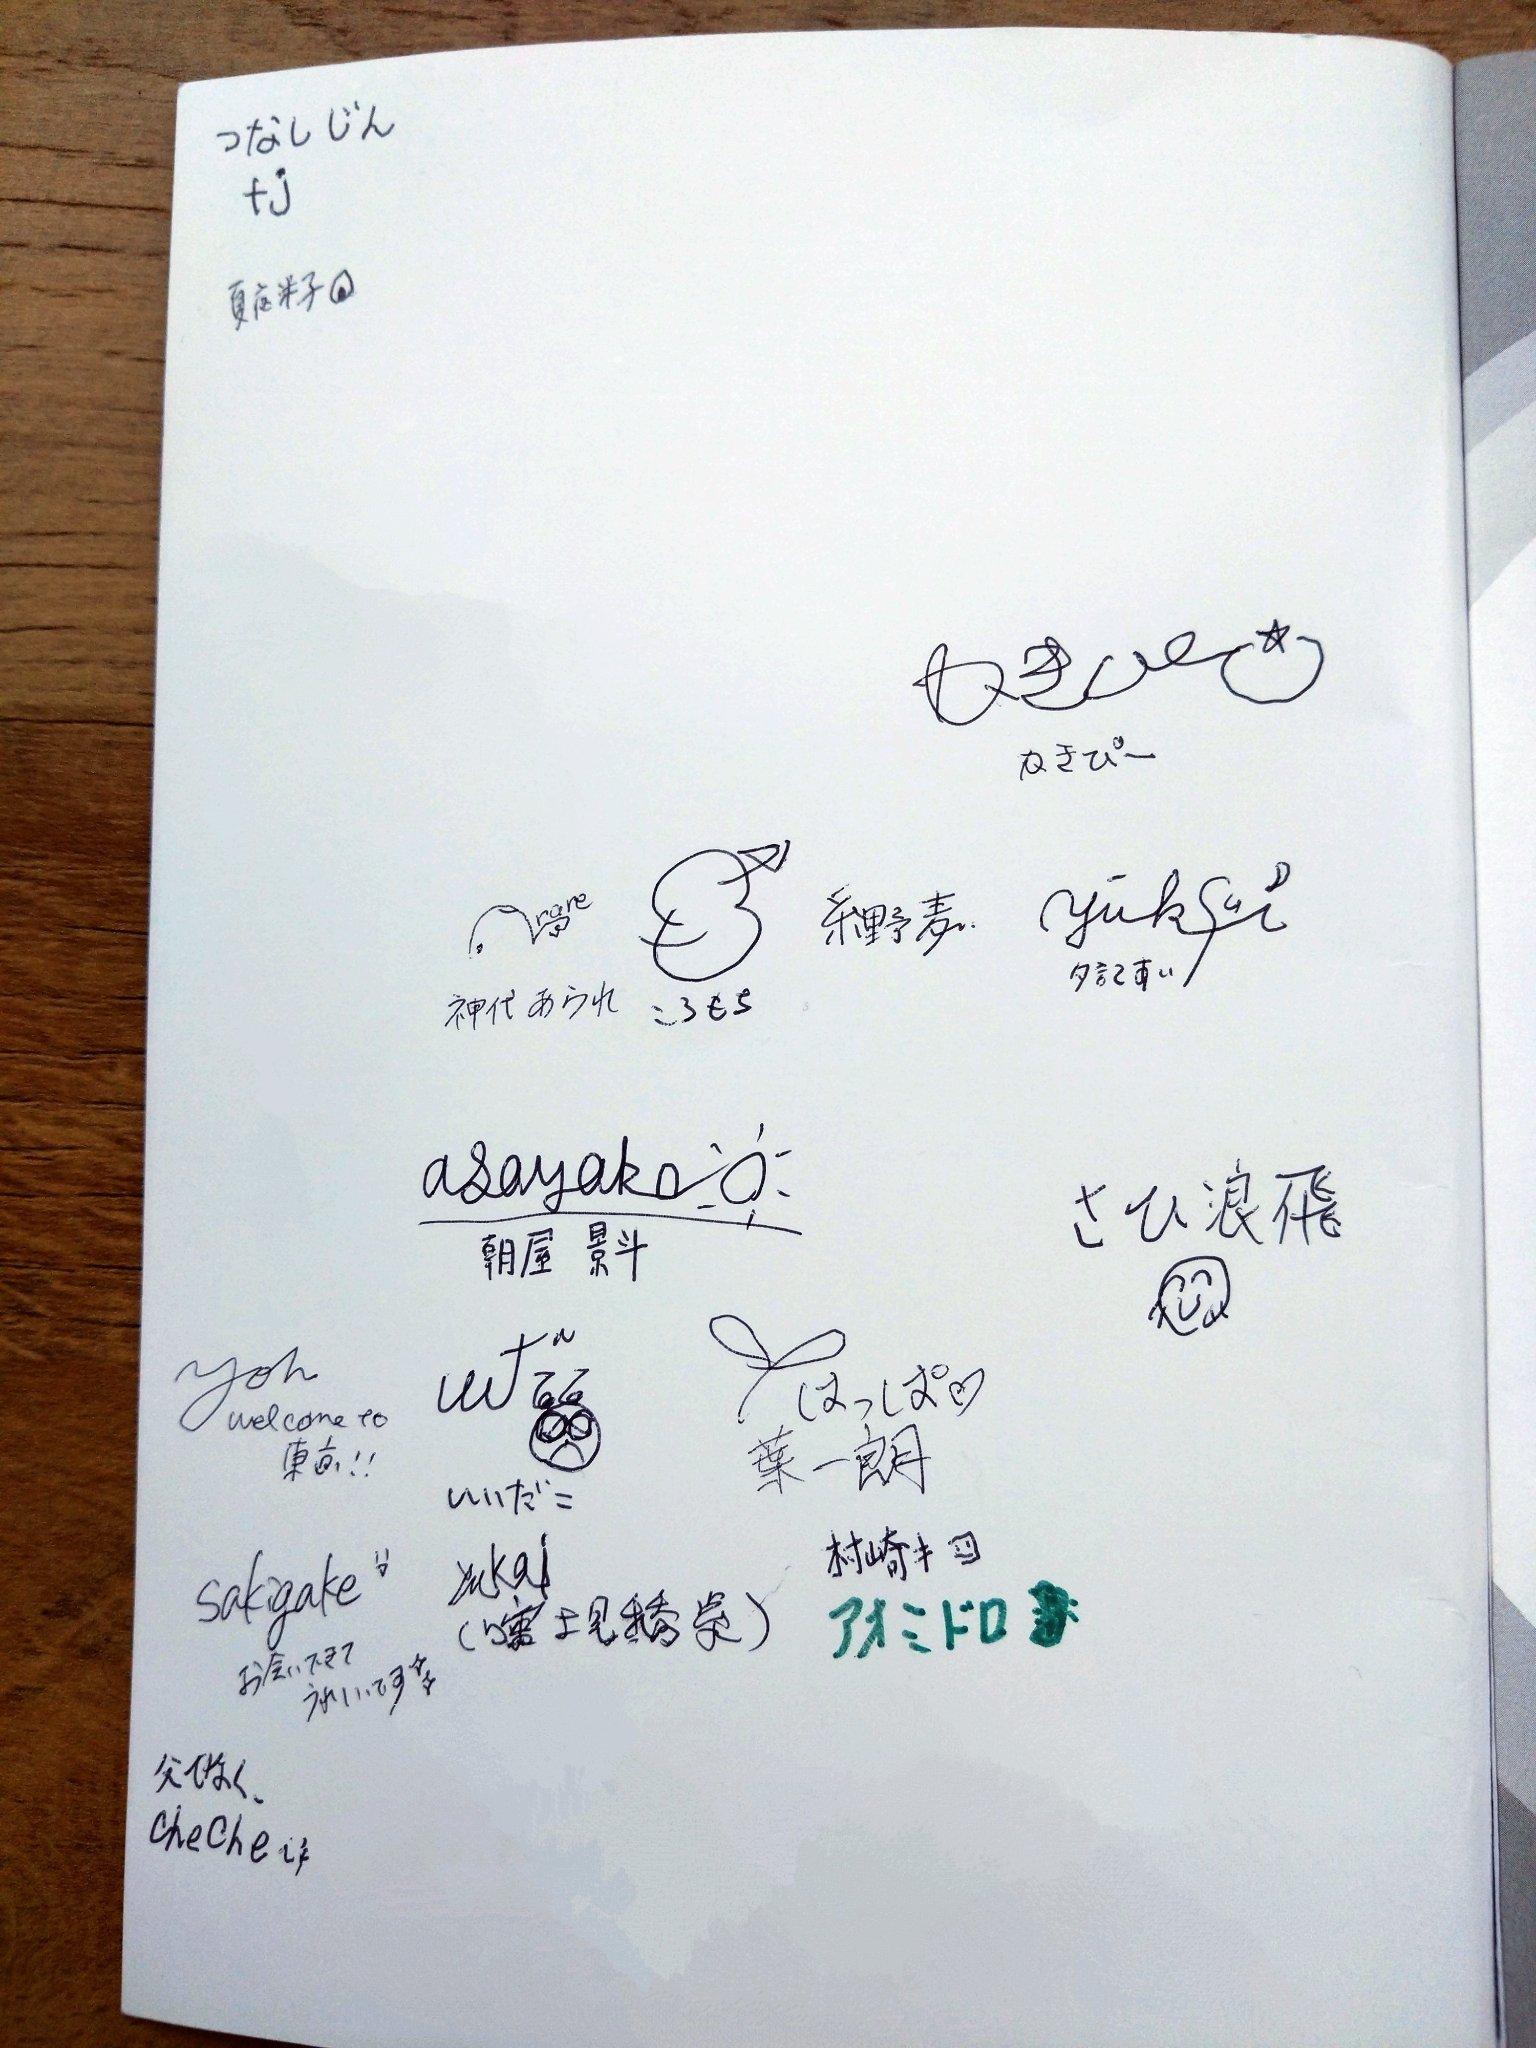 つなしじん
tj
夏座米子
なきぴー
なきぴー
rare
神代 あられ
ころもち
細野麦
yuk
夕記
asayake
朝屋 景斗
さひ 浪飛
yoh
welcome to
東京!!
いいだこ
はっぱ♡
葉一朗
sakigake
お会いできて
うれしいです
yukai
村崎キ
アオミドロ
父でなく、
CheChe